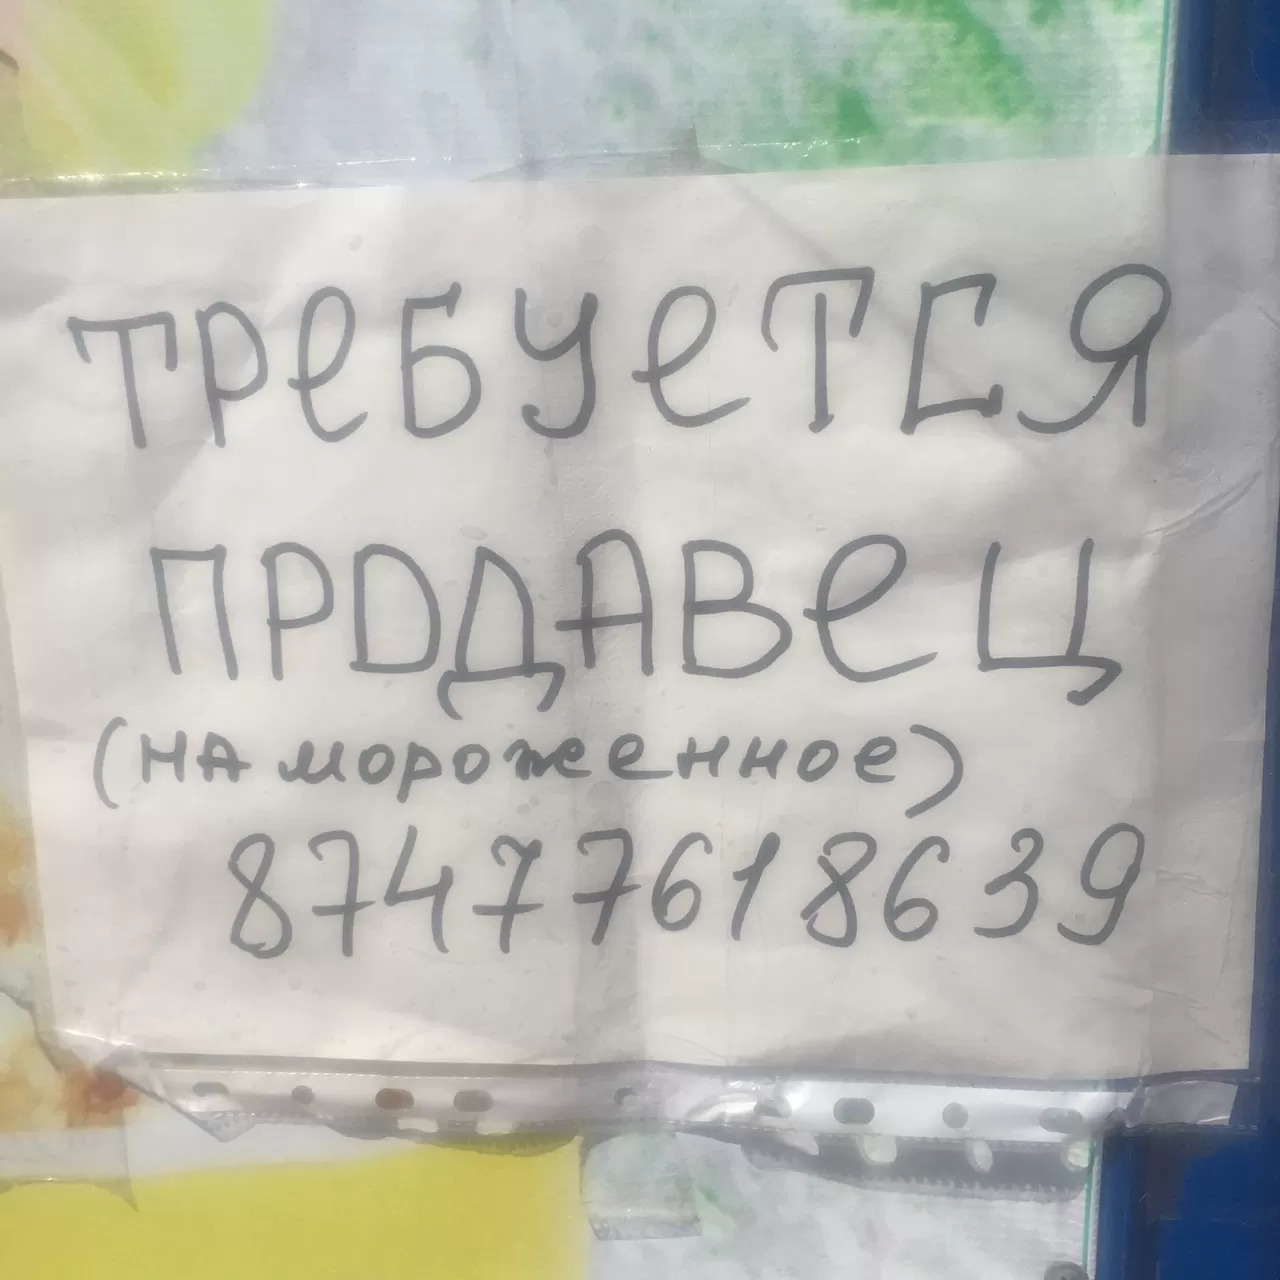 ТРЕБУЕТСЯ
ПРОДАВЕЦ
(НА мороженное)
87477618639